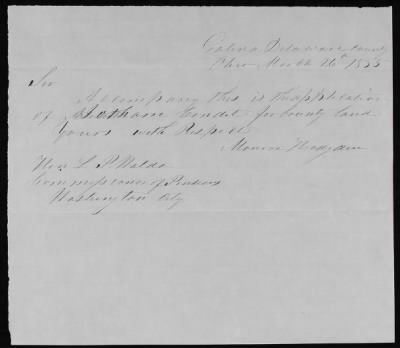 Galena Delaware County
Ohio March 26th 1855
Sir
Accompany this is the application
of Jotham for bounty land
yours with Respect
Monroe
Hon L P Waldo
Commissioner of Pensions
Washington City